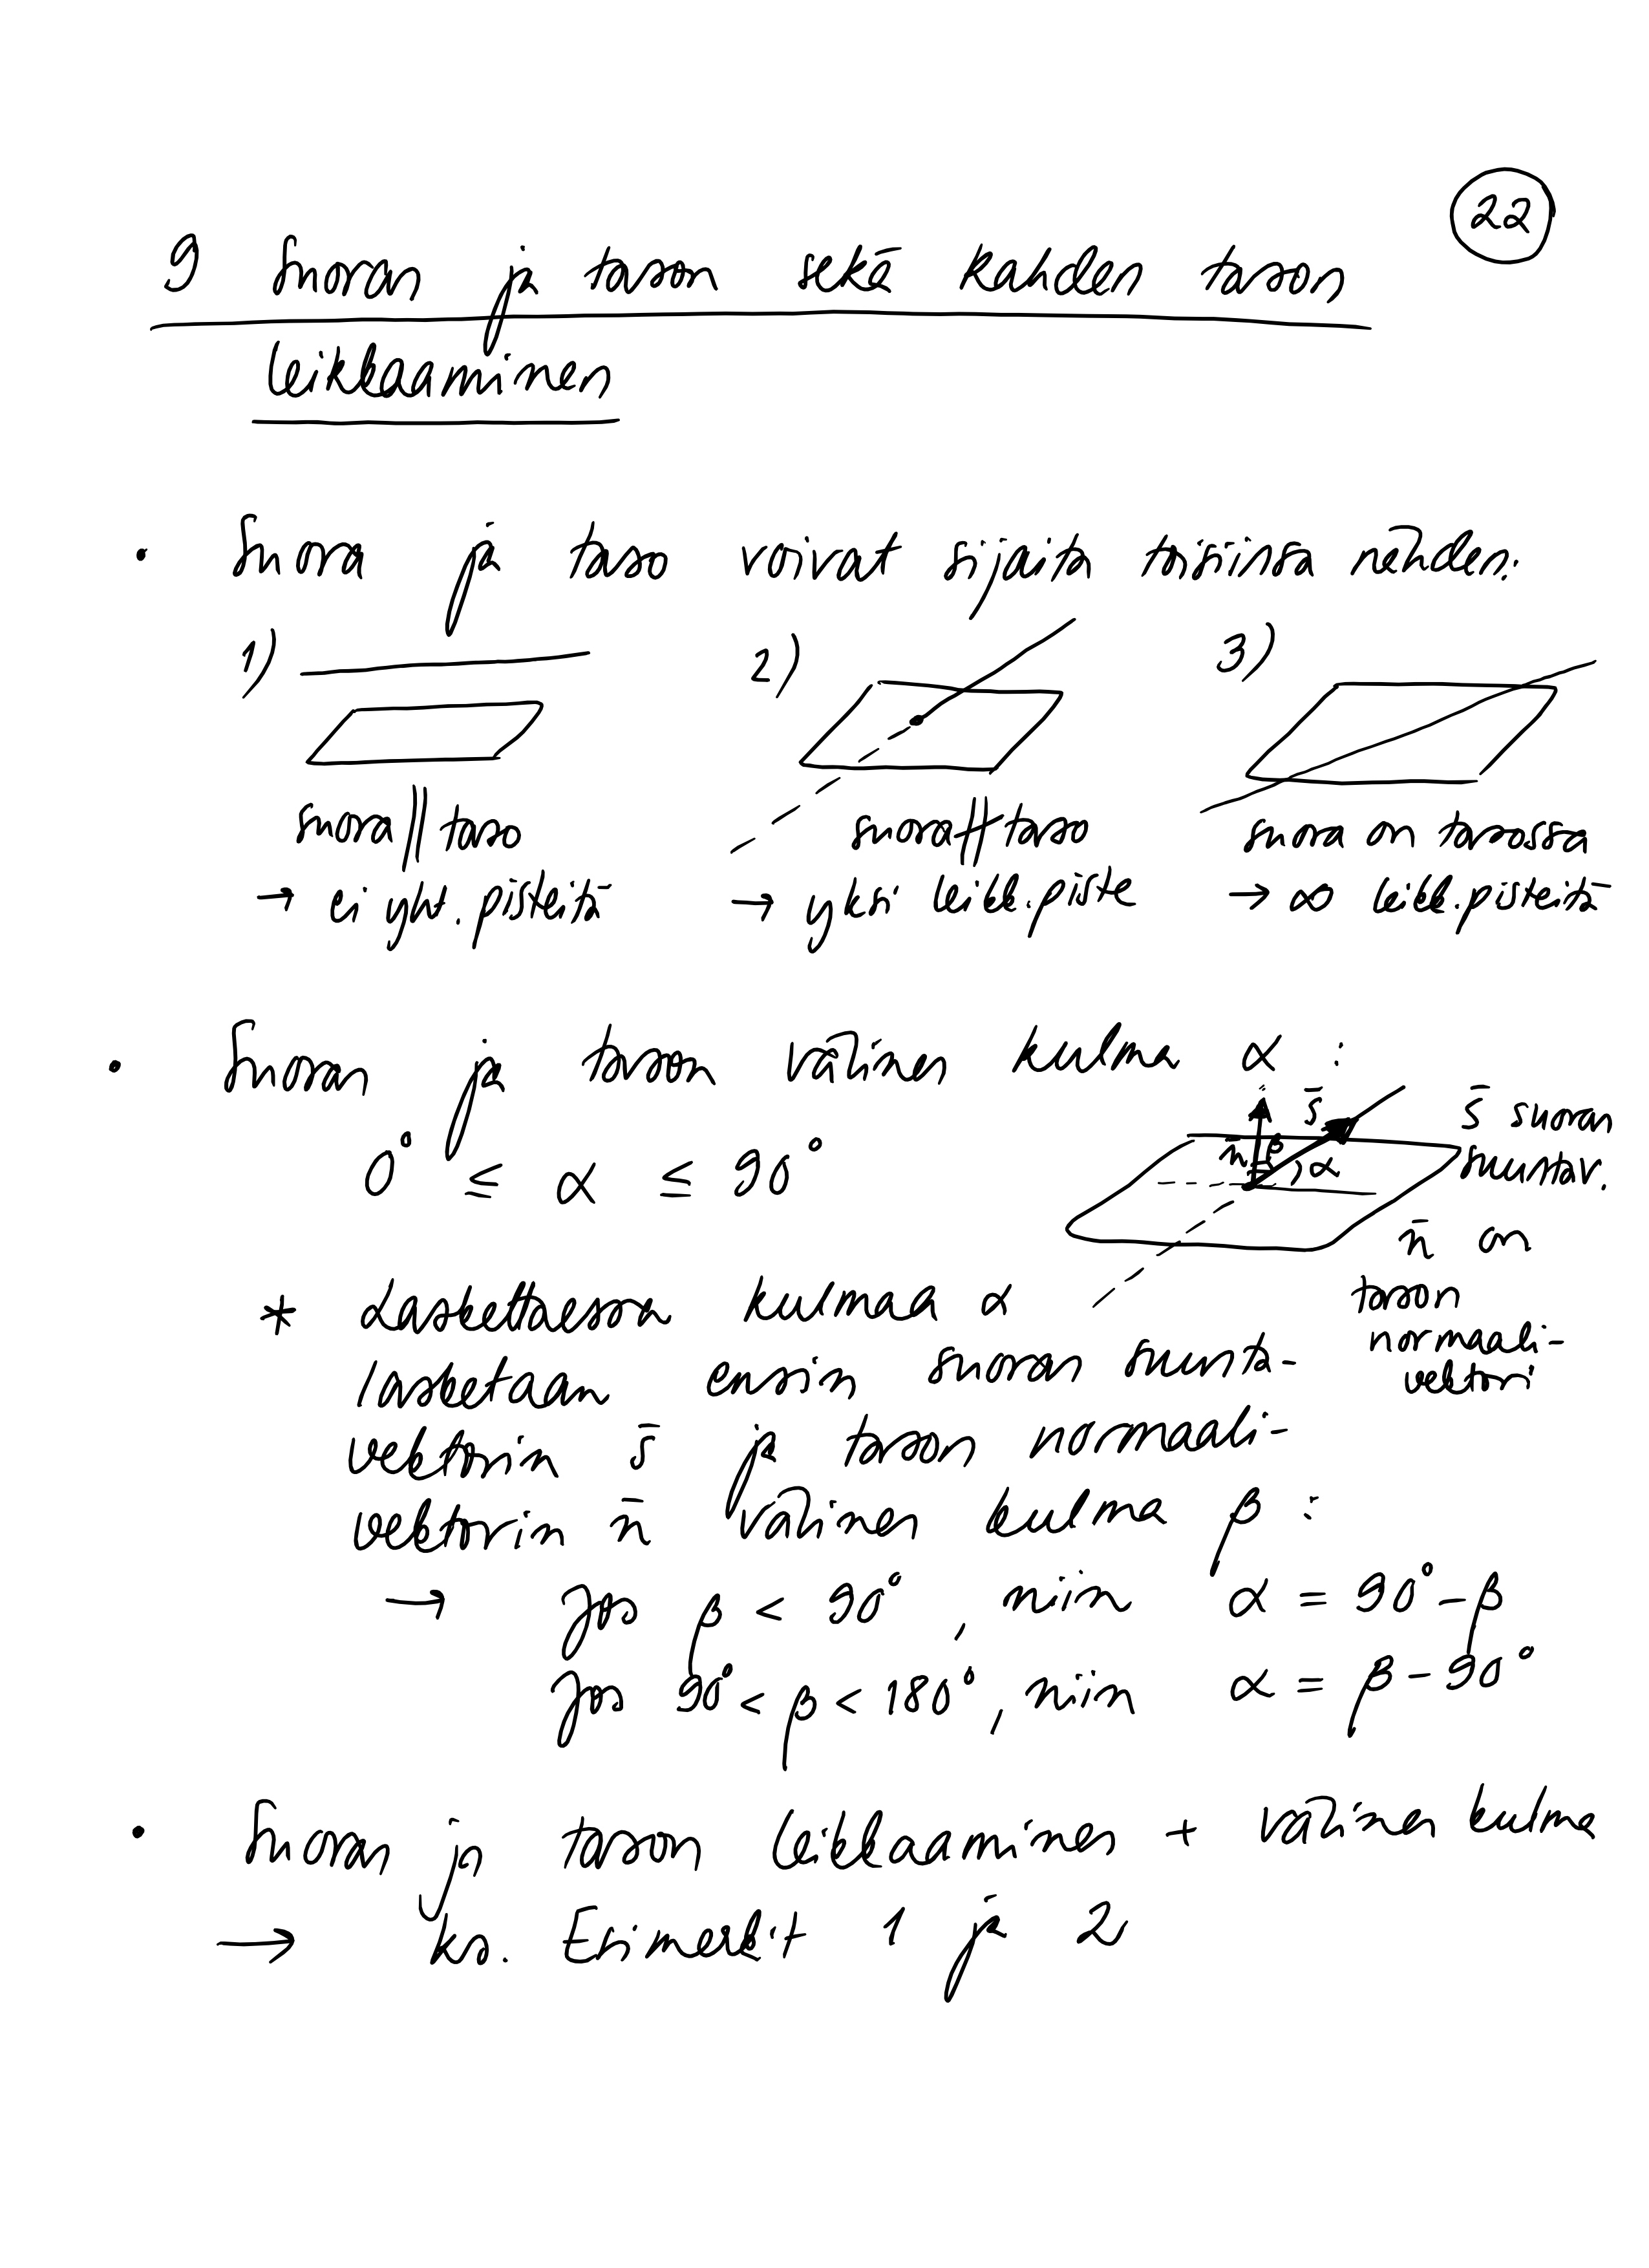 22
9 Suoran ja tason sekä kahden tason
leikkaaminen
• Suora ja taso voivat sijaita toisiinsa nähden:
1) 2) 3)
suora ∥ taso suora ∦ taso suora on tasossa
→ ei yht. pisteitä → yksi leikk.piste → ∞ leikk.pisteitä
• Suoran ja tason välinen kulma α :
s̄ s̄ suoran
n̄ β α suuntav.
0° ≤ α ≤ 90°
n̄ on
tason
normaali-
vektori
* Laskettaessa kulmaa α
lasketaan ensin suoran suunta-
vektorin s̄ ja tason normaali-
vektorin n̄ välinen kulma β :
→ Jos β < 90°, niin α = 90° - β
Jos 90° < β < 180°, niin α = β - 90°
• Suoran ja tason leikkaaminen + välinen kulma
→ ks. Esimerkit 1 ja 2